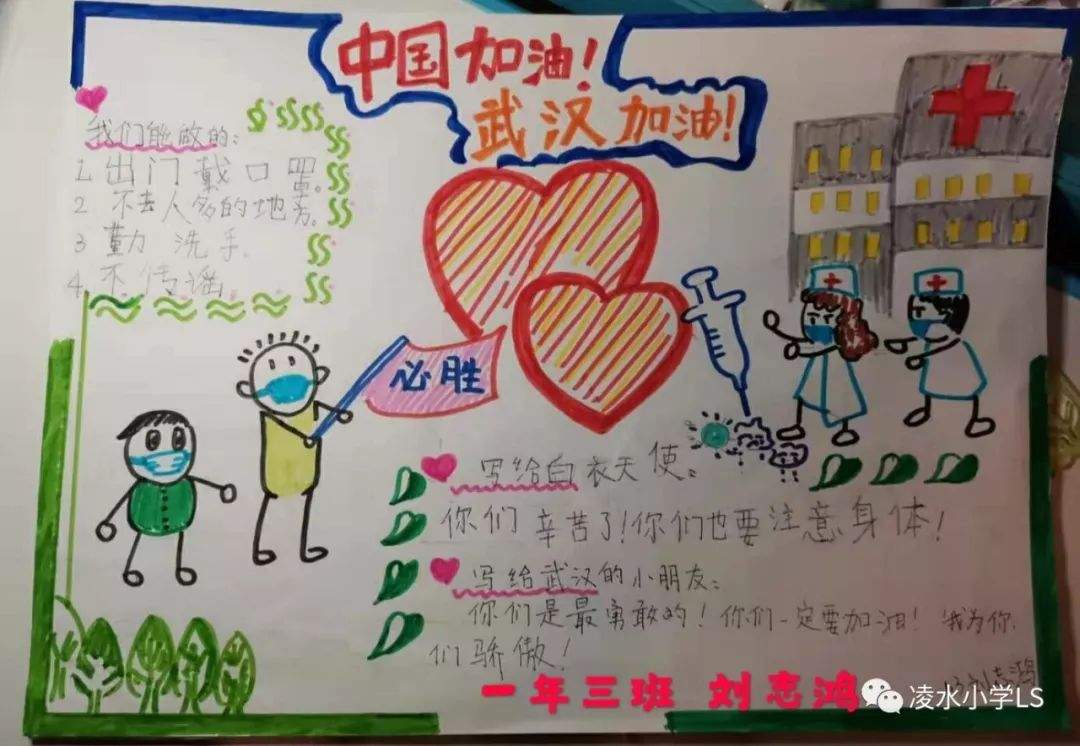 中国加油！
武汉加油！
我们能做的：
1.出门戴口罩。
2 不去人多的地方。
3 勤洗手.
4 不传谣.
必胜
写给白衣天使：
你们辛苦了！你们也要注意身体！
写给武汉的小朋友：
你们是最勇敢的！你们一定要加油！我为你
们骄傲！
1.3刘志鸿
一年三班 刘志鸿
凌水小学LS